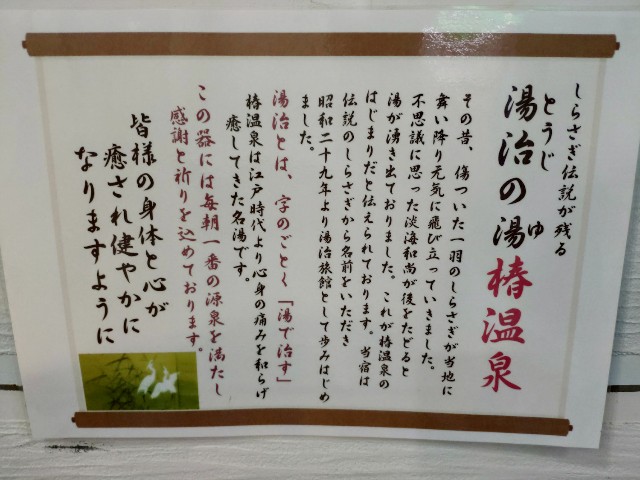 しらさぎ伝説が残る
とうじ
ゆ
湯治の湯 椿温泉
その昔、傷ついた一羽のしらさぎが当地に
舞い降り元気に飛び立っていきました。
不思議に思った淡海和尚が後をたどると
湯が湧き出ておりました。これが椿温泉の
はじまりだと伝えられております。当宿は
伝説のしらさぎから名前をいただき
昭和二十九年より湯治旅館として歩みはじめ
ました。
湯治とは、字のごとく「湯で治す」
椿温泉は江戸時代より心身の痛みを和らげ
癒してきた名湯です。
この器には毎朝一番の源泉を満たし
感謝と祈りを込めております。
皆様の身体と心が
癒され健やかに
なりますように